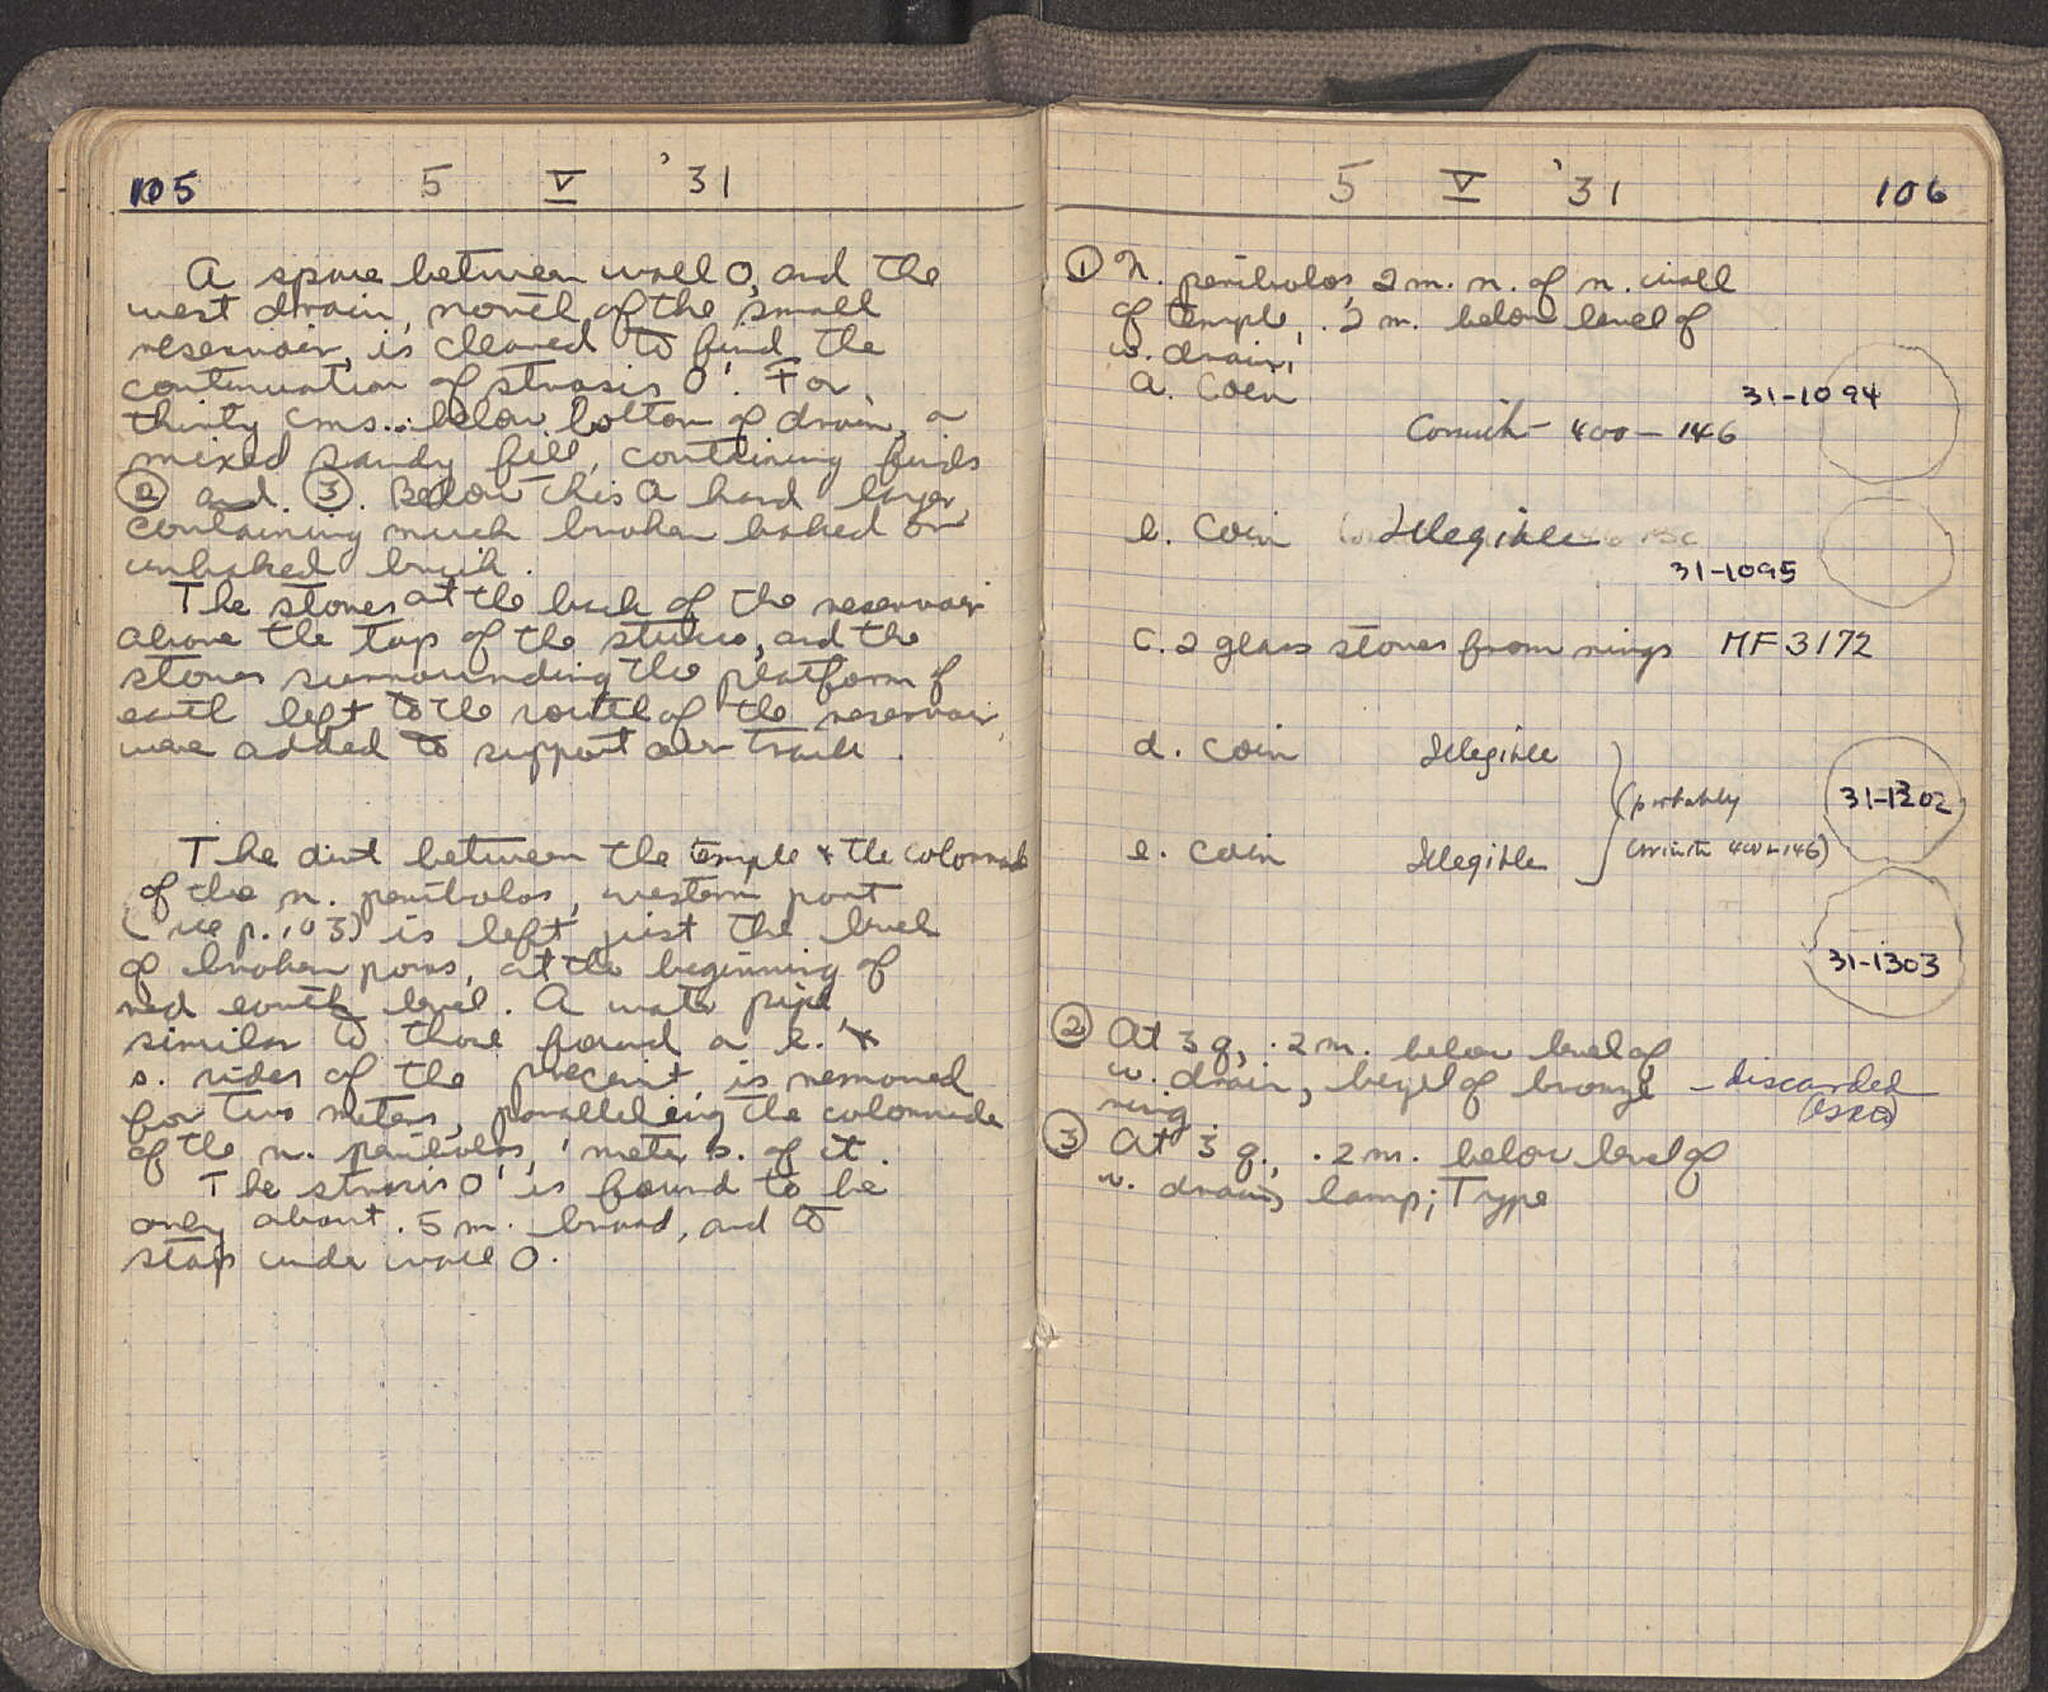 105 5 V '31
A space between wall O, and the
west drain, north of the small
reservoir, is cleared to find the
continuation of strosis O'. For
thirty cms.. below bottom of drain, a
mixed sandy fill, containing finds
② and ③. Below this a hard layer,
containing much broken baked or
unbaked brick.
The stones at the back of the reservoir
above the top of the stucco, and the
stones surrounding the platform of
earth left to the south of the reservoir,
were added to support our track.
The dirt between the temple & the colonnade
of the n. peribolos, western part
(see p. 103) is left just the level
of broken poros, at the beginning of
red earth level. A water pipe
similar to those found on e. &
s. sides of the precinct is removed
for two meters, paralleling the colonnade
of the n. peribolos, 1 meter s. of it.
The strosis O' is found to be
only about .5 m. broad, and to
stop under wall O.
5 V '31 106
① N. peribolos, 2 m. n. of n. wall
of temple, .2 m. below level of
w. drain,
a. Coin 31-1094
Corinth - 400-146
b. Coin Illegible
31-1095
c. 2 glass stones from rings MF 3172
d. Coin Illegible
(probably 31-1302
e. Coin Illegible Corinth 400-146)
31-1303
② At 3 q, .2 m. below level of
w. drain, bezel of bronze - discarded
ring
③ At 3 q., .2 m. below level of
w. drain, lamp; Type